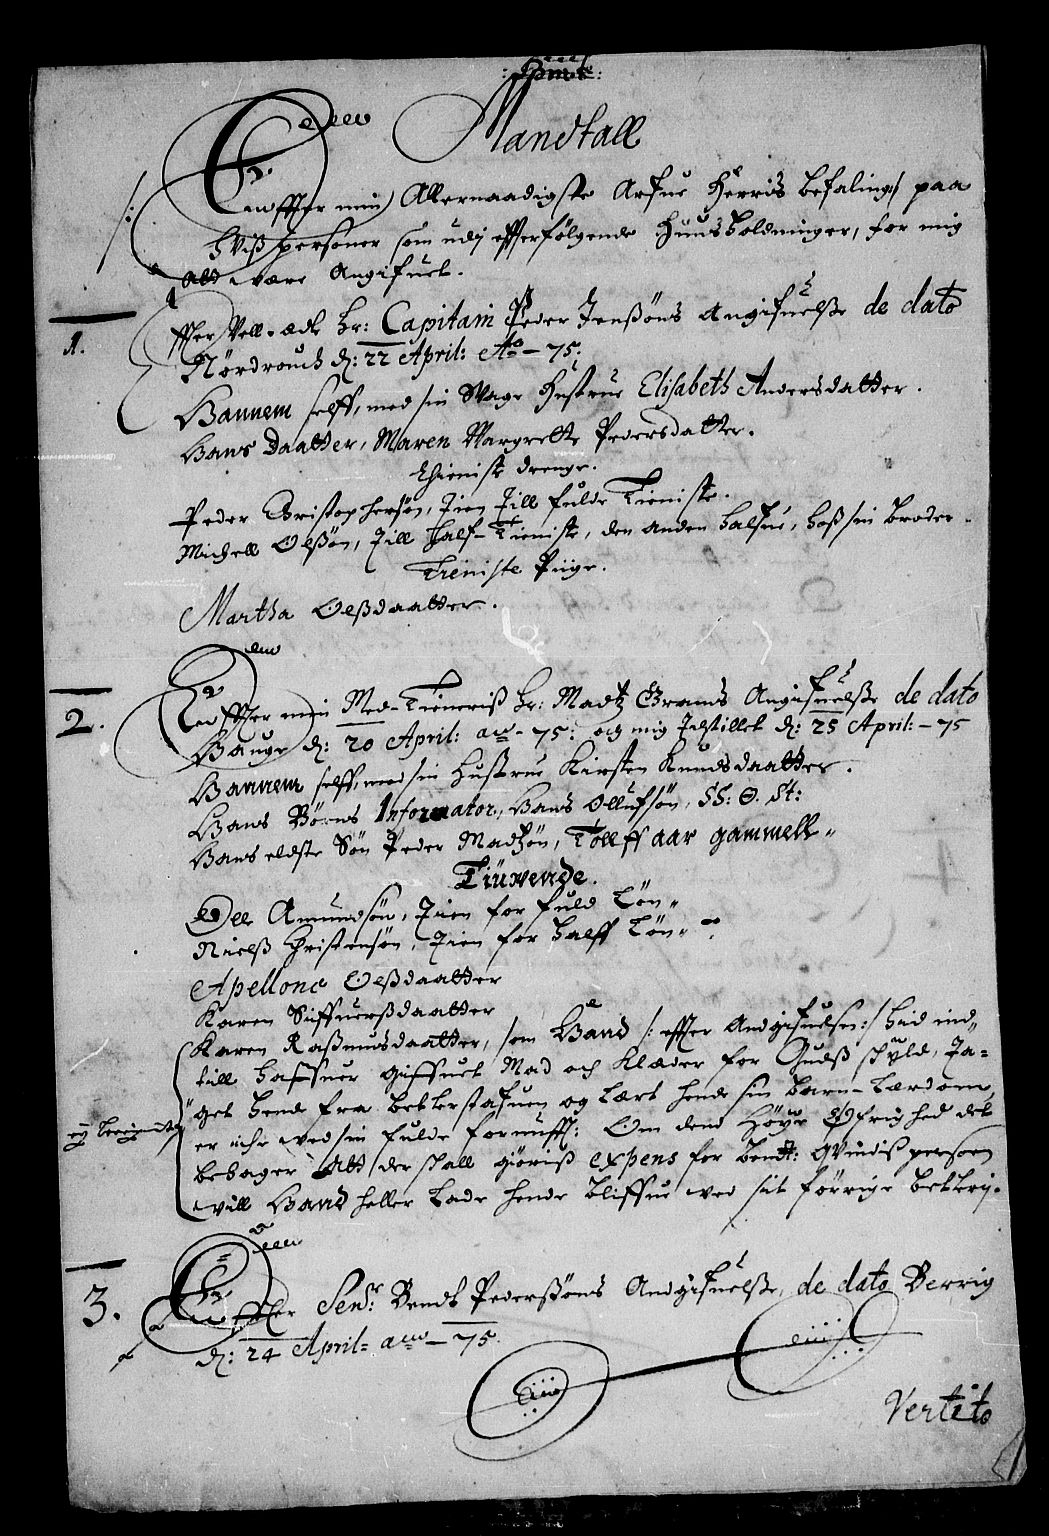 Mandtall
Effter min Allernaadigste Arfue Herris befaling /: paa
hviss personer som udj efferfølgende Huuszholdninger, for mig
att være Angifuet.
1.
Effter Vell-ædle Hr: Capitain Peder Jenssøns Angifuelsse de dato
Nordrouch d: 22 April: Ao - 75;
Hannem selff, med sin Hustrue Elisabeth Andersdatter.
Hans Daatter, Maren Margrette Pedersdatter.
Thieniste drenge.
Peder Christophersøn, Tien Till fulde Tieniste.
Michell Olssøn, Till Half-Tieniste, den anden halfue, hoss sin broder.
Tieniste Piige.
Martha Olssdaatter.
2.
Effter min Med-Tieneriss Hr: Madtz Grams Angifuelsse de dato
Hauge d: 20 April: ano - 75: og mig Tilstillet d: 25 April: - 75
Hannem selff, med sin Hustrue Kirsten Knudsdaatter.
Hans Børns Informator, Hans Ollufsøn, SS: S. St:
Hans eldste Søn Peder Madtzøn, Tollff aar gammell
Tiunende.
Ole Amundsøn, Tien for fuld Løn
Nielss Christensøn, Tien for halff Løn
Apellone Olssdaatter
Karen Siffuerssdaatter
Karen Rassmusdaatter, som Hand /: effter Andgifuelsen :/ hid ind
till haffuer giffuet Mad och Klæder for Gudss skyld, Ta-
get hende fra betlerstafuen og lært hende sin barn-lærdom,
er iche ved sin fulde fornufft: Om dend Høye Øfrighed det
behager Att der skall giøriss expens for bendt: Qvindiss person
will Hand heller lade hende blifue ved sit forrige betleri.
3.
Effter Senr. Bendt Pederssøns Andgifuelsse, de dato Berrig
d: 24 April: ano - 75.
Vertito